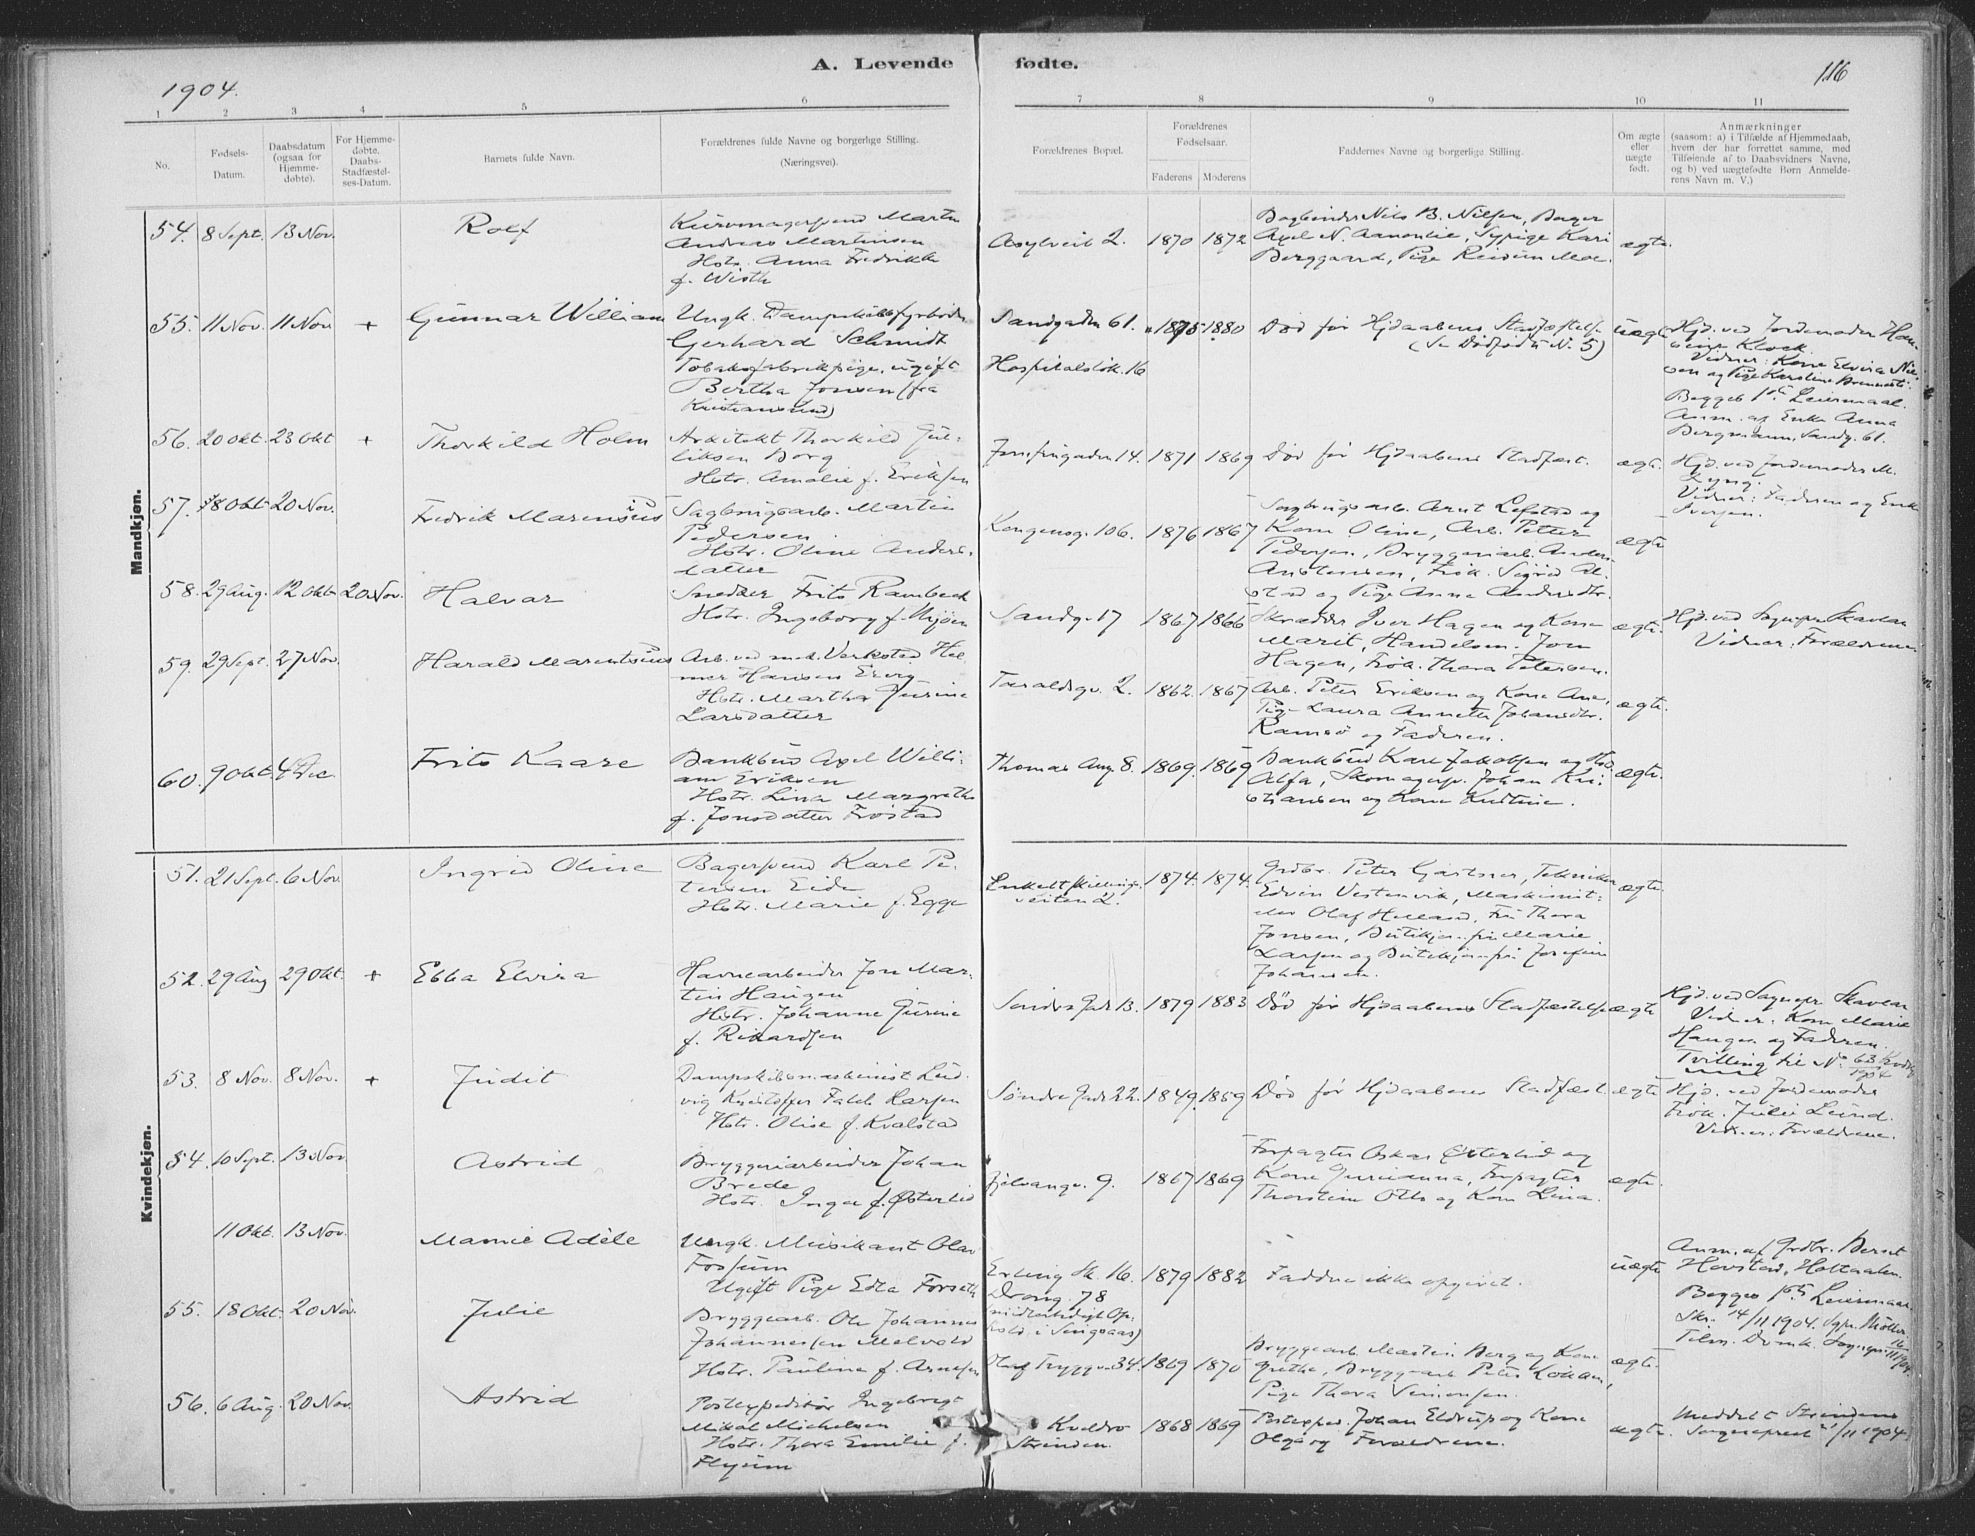 1904.
A. Levende fødte.
116
1 2 3 4 5 6 7 8 9 10 11
No.
Fødsels-
Datum.
Daabsdatum
(ogsaa for
Hjemme-
døbte).
For Hjemme-
døbte,
Daabs-
Stadfæstel-
ses-Datum.
Barnets fulde Navn.
Forældrenes fulde Navne og borgerlige Stilling.
(Næringsvei).
Forældrenes Bopæl.
Forældrenes
Fødselsaar.
Faderens
Moderens
Faddernes Navne og borgerlige Stilling.
Om ægte
eller
uægte
født.
Anmærkninger
(saasom: a) i Tilfælde af Hjemmedaab,
hvem der har forrettet samme, med
Tilføiende af to Daabsvidners Navne,
og b) ved uægtefødte Børn Anmelde-
rens Navn m. V.)
Mandkjøn.
54. 8 Sept. 13 Nov.
Rolf
Kurvmagersvend Martin
Andreas Martinsen
Hstr. Anna Fredrikke
f. Wisth
Asylveit 2. 1870 1872
Bogbinder Nils B. Nilsen, Bager
Axel N. Aamonlie, Sypige Kari
Berggaard, Pige Reidun Moe.
ægte.
55. 11 Nov. 11 Nov. +
Gunnar William
Ungk. Dampskibsfyrbøder
Gerhard Schmidt
Tobaksfabrikpige, ugift
Bertha Jonsen (fra
Kristiansund)
Sandgaden 61. 1875 1880
Hospitalsløk. 16
Død før Hjdaabens Stadfæstelse
(Se Dødfødte N. 5)
uægte
Hjd. ved Jordemoder Han-
sine Klock.
Vidner: Kone Elvira Nil-
sen og Pige Karstine
Begges 1ste Leiermaal.
Anm. af Enke Anna
Bergmann, Sandg. 61.
56. 20 Okt. 23 Okt +
Thorkild Holm
Arkitekt Thorkild Gul-
liksen Borg
Hstr. Amalie f. Eriksen
Jomfrugaden 14. 1871 1869
Død før Hjdaabens Stadfæst.
ægte.
Hjd. ved Jordemoder M.
Lyng.
Vidner: Faderen og Enke
Iversen.
57. 18 Okt 20 Nov.
Fredrik Marensius
Sagbrugsarb. Martin
Pedersen
Hstr. Oline Anders-
datter
Kongensg. 106. 1876 1867
Sagbrugsarb. Arnt Lefstad og
Kone Oline, Arb. Petter
Pedersen, Bryggeriarb. Anders
Anstensen, Frøk. Sigrid Al-
stad og Pige Anna Andersdtr.
ægte
58. 29 Aug. 12 Okt 20 Nov.
Halvar
Snedker Frits Rambech
Hstr. Ingeborg f. Mjøen
Sandg. 17 1867 1866
Skrædder Iver Hagen og Kone
Marit, Handelsm. Jon
Hagen, Frøk. Thora Petersen.
ægte.
Hjd. ved Sognepr. Skavlan
Vidner: Forældrene
59. 29 Sept. 27 Nov.
Harald Marentsius
Arb. ved med. Verksted Hil-
mer Hansen Evrg
Hstr. Martha Jurine
Larsdatter
Taraldsgv. 2. 1862. 1867
Arb. Peter Eriksen og Kone Ane,
Pige Laura Annette Johansdtr.
Ramsø og Faderen.
ægte.
60. 9 Okt 4 Dec.
Frits Kaare
Bankbud Axel Willi-
am Eriksen
Hstr. Lina Margrethe
f. Jonsdatter Frostad
Thomas Ang. 8. 1869. 1869
Bankbud Karl Jakobsen og
Alfa, Skomagersv. Johan Kri-
stiansen og Kone Kristine.
ægte.
Kvindekjøn.
51. 21 Sept. 6 Nov.
Ingrid Oline
Bagersvend Karl Pe-
tersen Eide
Hstr. Marie f. Egge
Enkeltskillings-
veiten 2. 1874. 1874.
Grdbr. Peter Gartner, Tekniker
Edvin Vestenvik, Maskinist-
elev Olaf Helland, Fru Thora
Jonsen, Butikjomfru Marie
Larsen og Butikjomfru Josefine
Johansen.
ægte
52. 29 Aug 29 Okt. +
Ebba Elvira
Havnearbeider Jon Mar-
tin Haugen
Hstr. Johanne Gurine
f. Rikardsen
Søndre Gade 13. 1879 1883
Død før Hjdaabens Stadfæstelse
ægte
Hjd. ved Sognepr. Skavlan
Vidner: Kone Marie
Haugen og Faderen.
Tvilling til No 63 Kvdkj
1904
53. 8 Nov. 8 Nov. +
Judit
Dampskibsmaskinist Lud-
vig Kristoffer Falch Larsen
Hstr. Olise f. Kvalstad
Søndre Gade 22. 1849. 1859
Død før Hjdaabens Stadfæst
ægte
Hjd. ved Jordemoder
Frøk. Julie Lund.
Vidner: Forældrene.
54. 10 Sept. 13 Nov
Astrid
Bryggeriarbeider Johan
Brede
Hstr. Inga f. Østerlid
9. 1867 1869
Forpagter Oskar Østerlid og
Kone Gurianna, Forpagter
Thorstein Olls og Kone Lina.
ægte.
11 Okt. 13 Nov.
Mamie Adèle
Ungk. Musikant Olav
Fossum
Ugift Pige Edla Forseth
Erling Sk. 16. 1879 1882
Drong. 78
(midlertidigt Op-
hold i Singsaas)
Faddere ikke opgivet.
uægte
Anm. af Grdbr. Bernt
Hovstad, Holtaalen.
Begges 1ste Leiermaal
Skr. 14/11 1904. Sgpr. Møller
Telm. Domk. Sognepr. 16/11 1904.
55. 18 Okt. 20 Nov.
Julie
Bryggearb. Ole Johannes
Johannessen Melvold
Hstr. Pauline f. Arnesen
Olaf Tryggv. 34. 1869 1870
Bryggearb. Martin Berg og Kone
Grethe, Bryggearb. Peter Johan,
Pige Thora Simonsen.
ægte.
56. 6 Aug. 20 Nov.
Astrid
Postexpeditør Ingebrigt
Mikal Michelsen
Hstr. Thora Emilie f.
Flyum
Kveldro
Strinden. 1868 1869
Postexped. Johan Eldrup og Kone
Olga og Forældrene.
ægte.
Meddelt Strindens
Sogneprest 21/11 1904